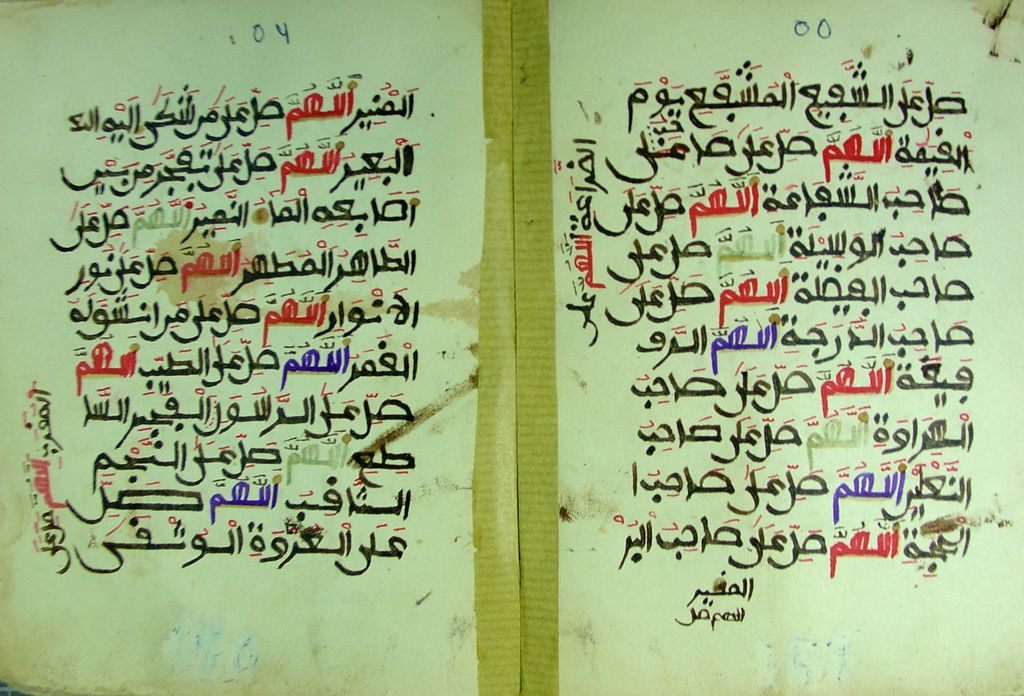 ٥٥
صل على الشفيع المشفع يوم
القيمة اللهم صل على
صاحب الشفاعة اللهم صل على
صاحب الوسيلة اللهم صل على
صاحب الفضلة اللهم صل على
صاحب الدرجة اللهم الرف
فيعة اللهم صل على صاحب
الهراوة اللهم صل على صاحب
النعلين اللهم صل على صاحب ا
الحجة اللهم صل على صاحب البر
اللهم صل
الضراعة اللهم على
٥٤
المنير اللهم صل على من شكى اليه البع
البعير اللهم صل على تفجر من بين
اصابعه الماء النمير اللهم صل على
الطاهر المطهر اللهم صل على نور
الانوار اللهم صل على من انشق له
القمر اللهم صل على الطيب اللهم
صل على الرسول الفجر السا
طع اللهم صل على النجم
الثاقب اللهم صل
على العروة الوثقى
المقرب اللهم صل على